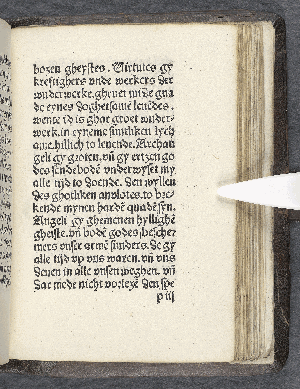 bozen gheystes. Virtutes gy
kreftighers vnde werkers der
wnderwerke. gheuet mi de gna
de eynes doghetsamē leuēdes.
wente id is ghar groet wnder-
werk. in eyneme sundiken lych
ame. hillich to leuende. Archan
geli gy groten. vn̄ gy ertzen go
des sēndebodē vnderwyset my
alle tijd to doende. den wyllen
des ghotliken anblotes. to bre
kende mynen hardē quadē syn.
Angeli gy ghemenen hyllighē
gheiste. vn̄ bodē godes. bescher
mers vnser armē sunders. de gy
alle tijd vp vns waren. vn̄ vns
denen in alle vnsen weghen. vn̄
dar mede nicht vorlezē den spe
p iij